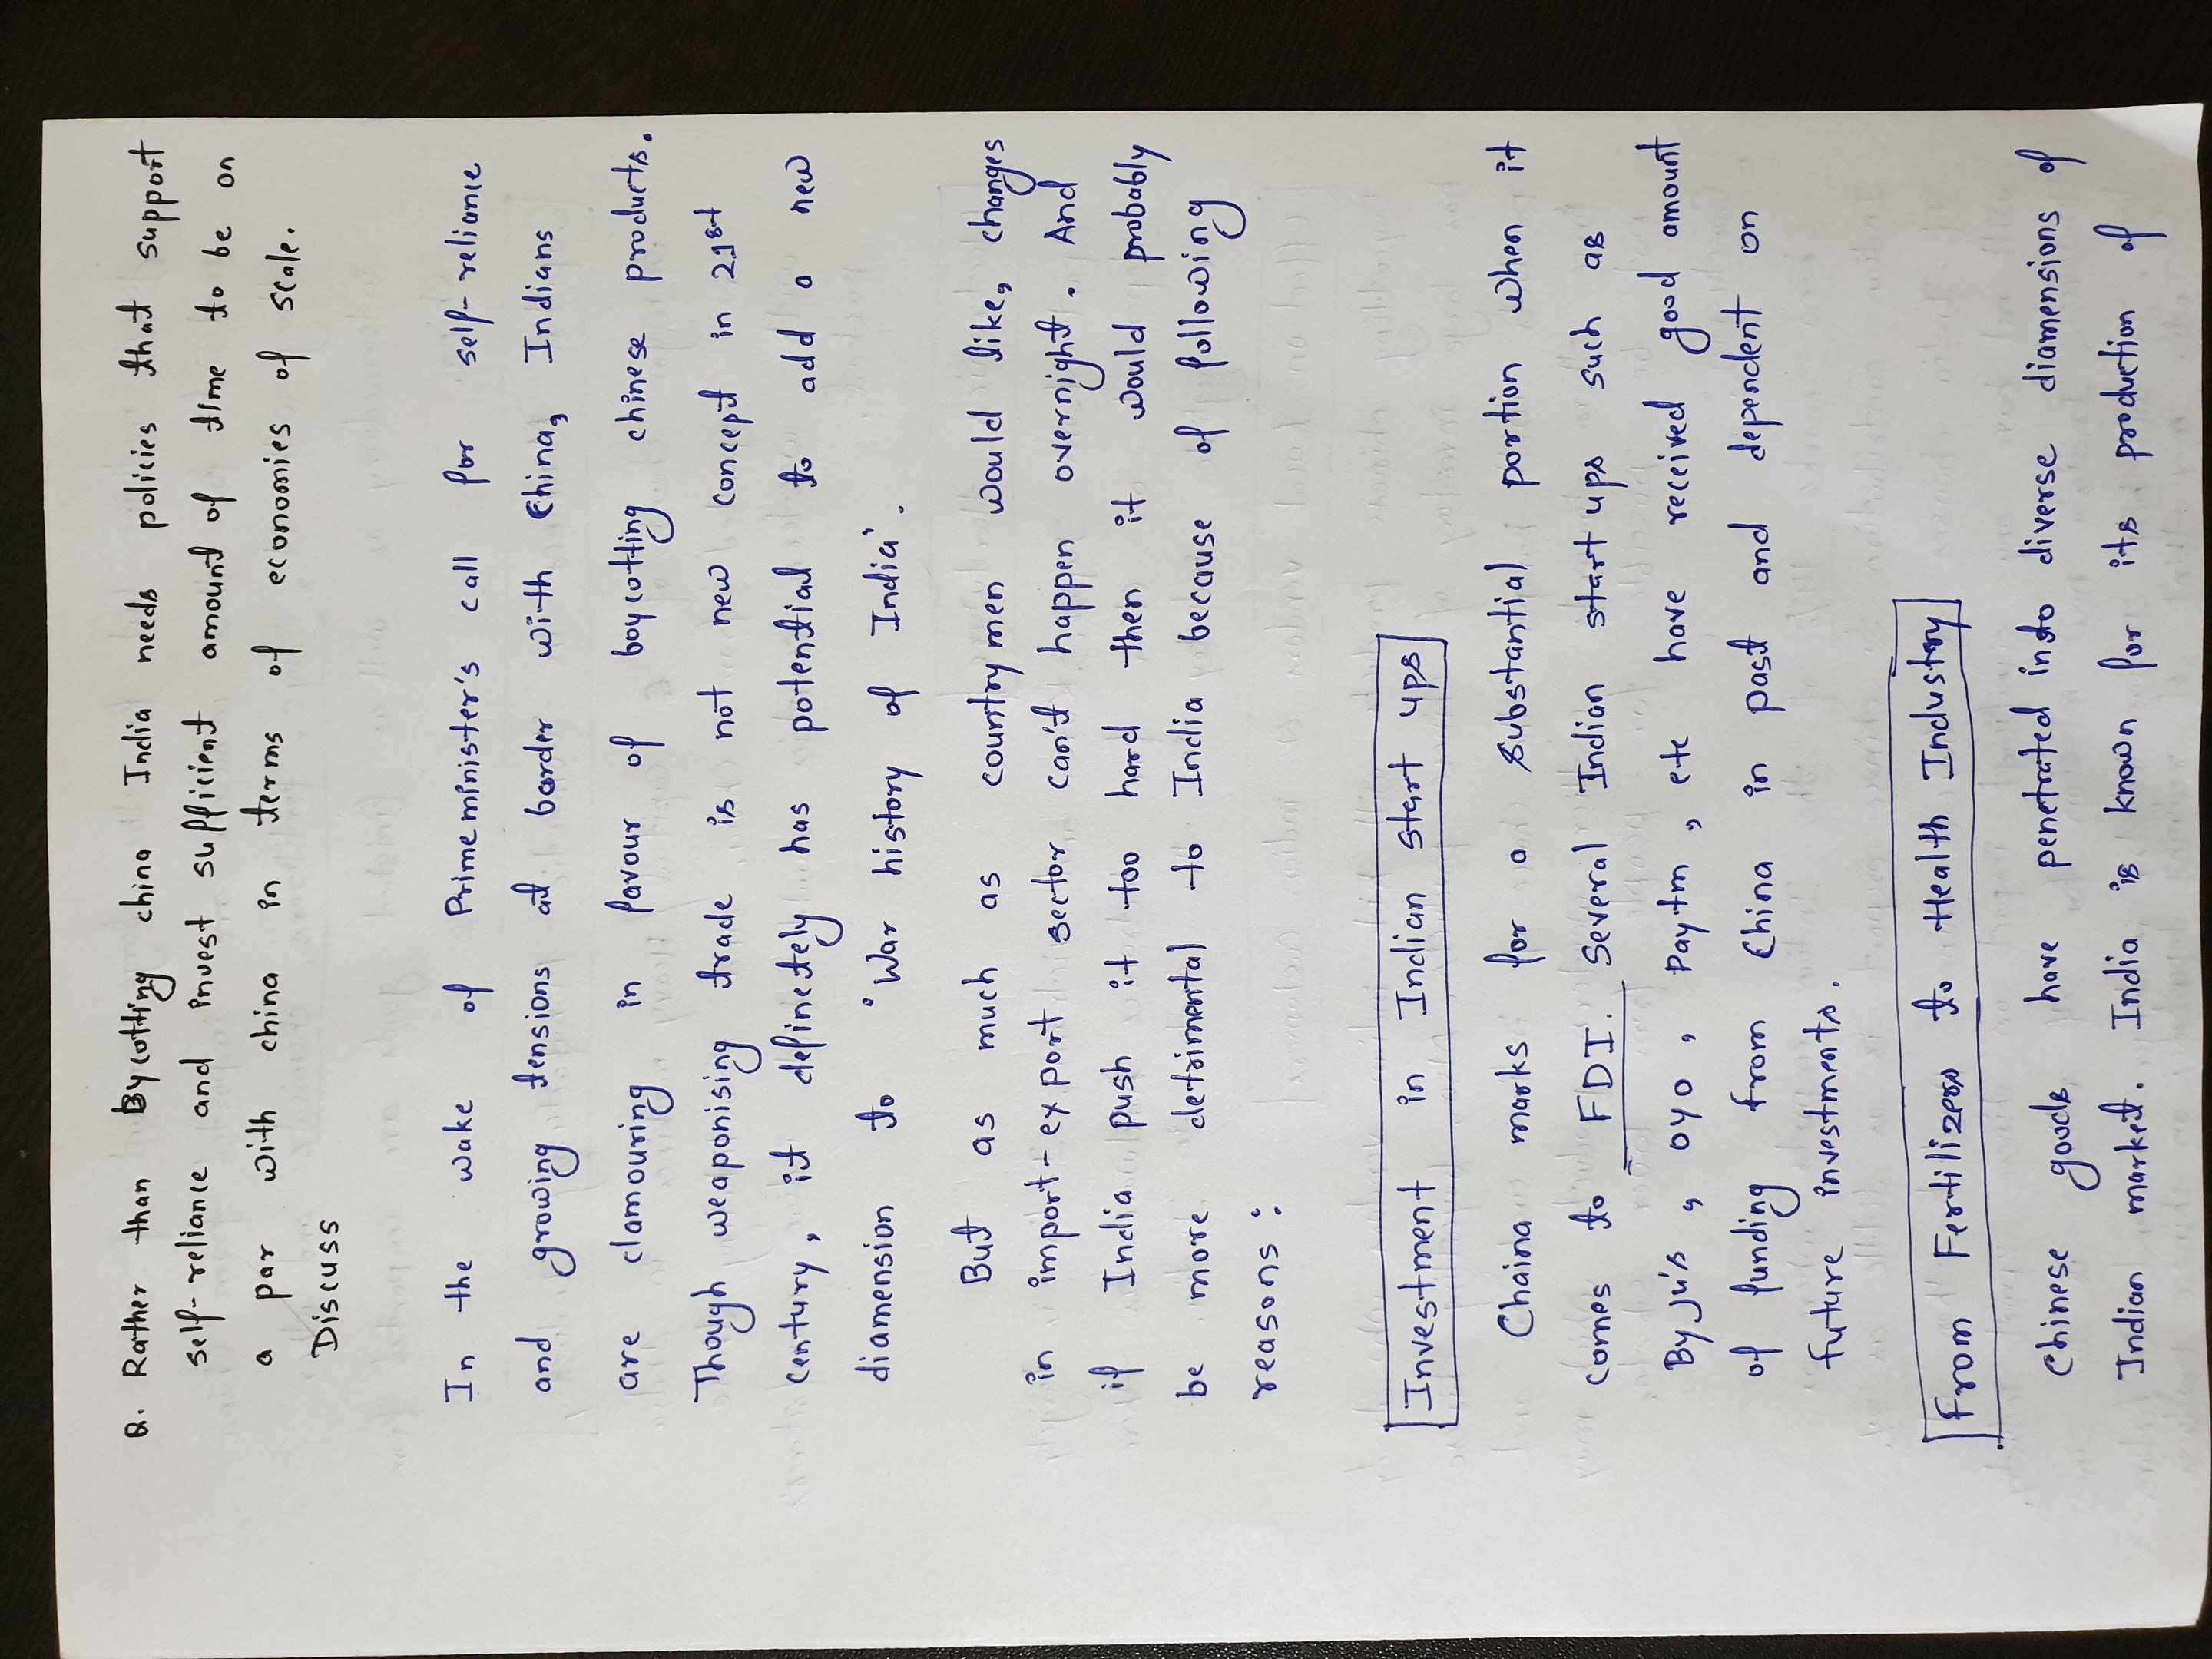 Q. Rather than Bycotting china India needs policies that support
self-reliance and invest sufficient amount of time to be on
a par with china in terms of economies of scale.
Discuss
In the wake of Primeminister's call for self-reliance
and growing tensions at border with China, Indians
are clamouring in favour of boycotting chinese products.
Though weaponising trade is not new concept in 21st
century, it definetely has potential to add a new
diamension to 'War history of India'.
But as much as countrymen would like, changes
in import-export sector can't happen overnight. And
if India push it too hard then it would probably
be more detrimental to India because of following
reasons:
Investment in Indian start ups
Chaina marks for a substantial portion when it
comes to FDI. Several Indian start ups such as
Byju's, oyo, Paytm, etc have received good amount
of funding from China in past and dependent on
future investments.
From Fertilizers to Health Industry
Chinese goods have penetrated into diverse diamensions of
Indian market. India is known for its production of